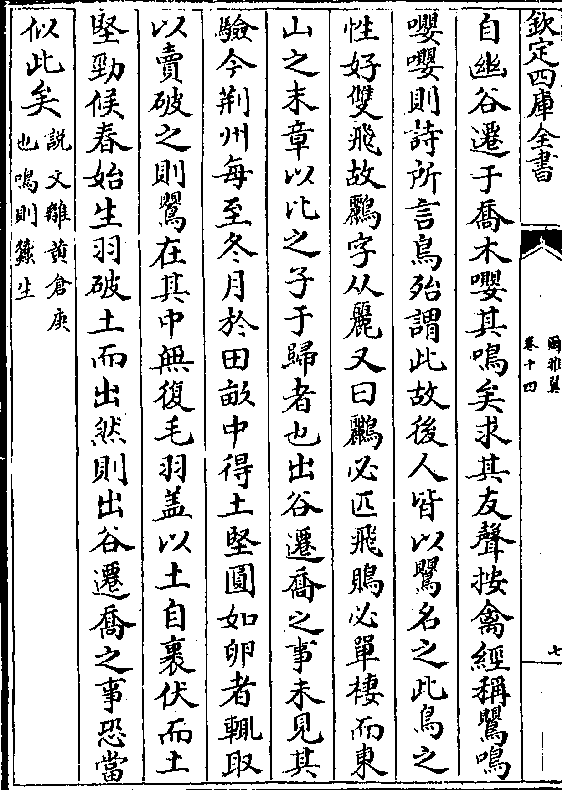 欽定四庫全書
爾雅翼
卷十四
七
自幽谷遷于喬木嚶其鳴矣求其友聲按禽經稱鸎鳴
嚶嚶則詩所言鳥殆謂此故後人皆以鸎名之此鳥之
性好雙飛故鸝字从麗又曰鸝必匹飛鵙必單棲而東
山之末章以比之子于歸者也出谷遷喬之事未見其
驗今荆州每至冬月於田畝中得土堅圓如卵者輒取
以賣破之則鸎在其中無復毛羽盖以土自裹伏而土
堅勁候春始生羽破土而出然則出谷遷喬之事恐當
似此矣
説文離黄倉庚
也鳴則蠶生